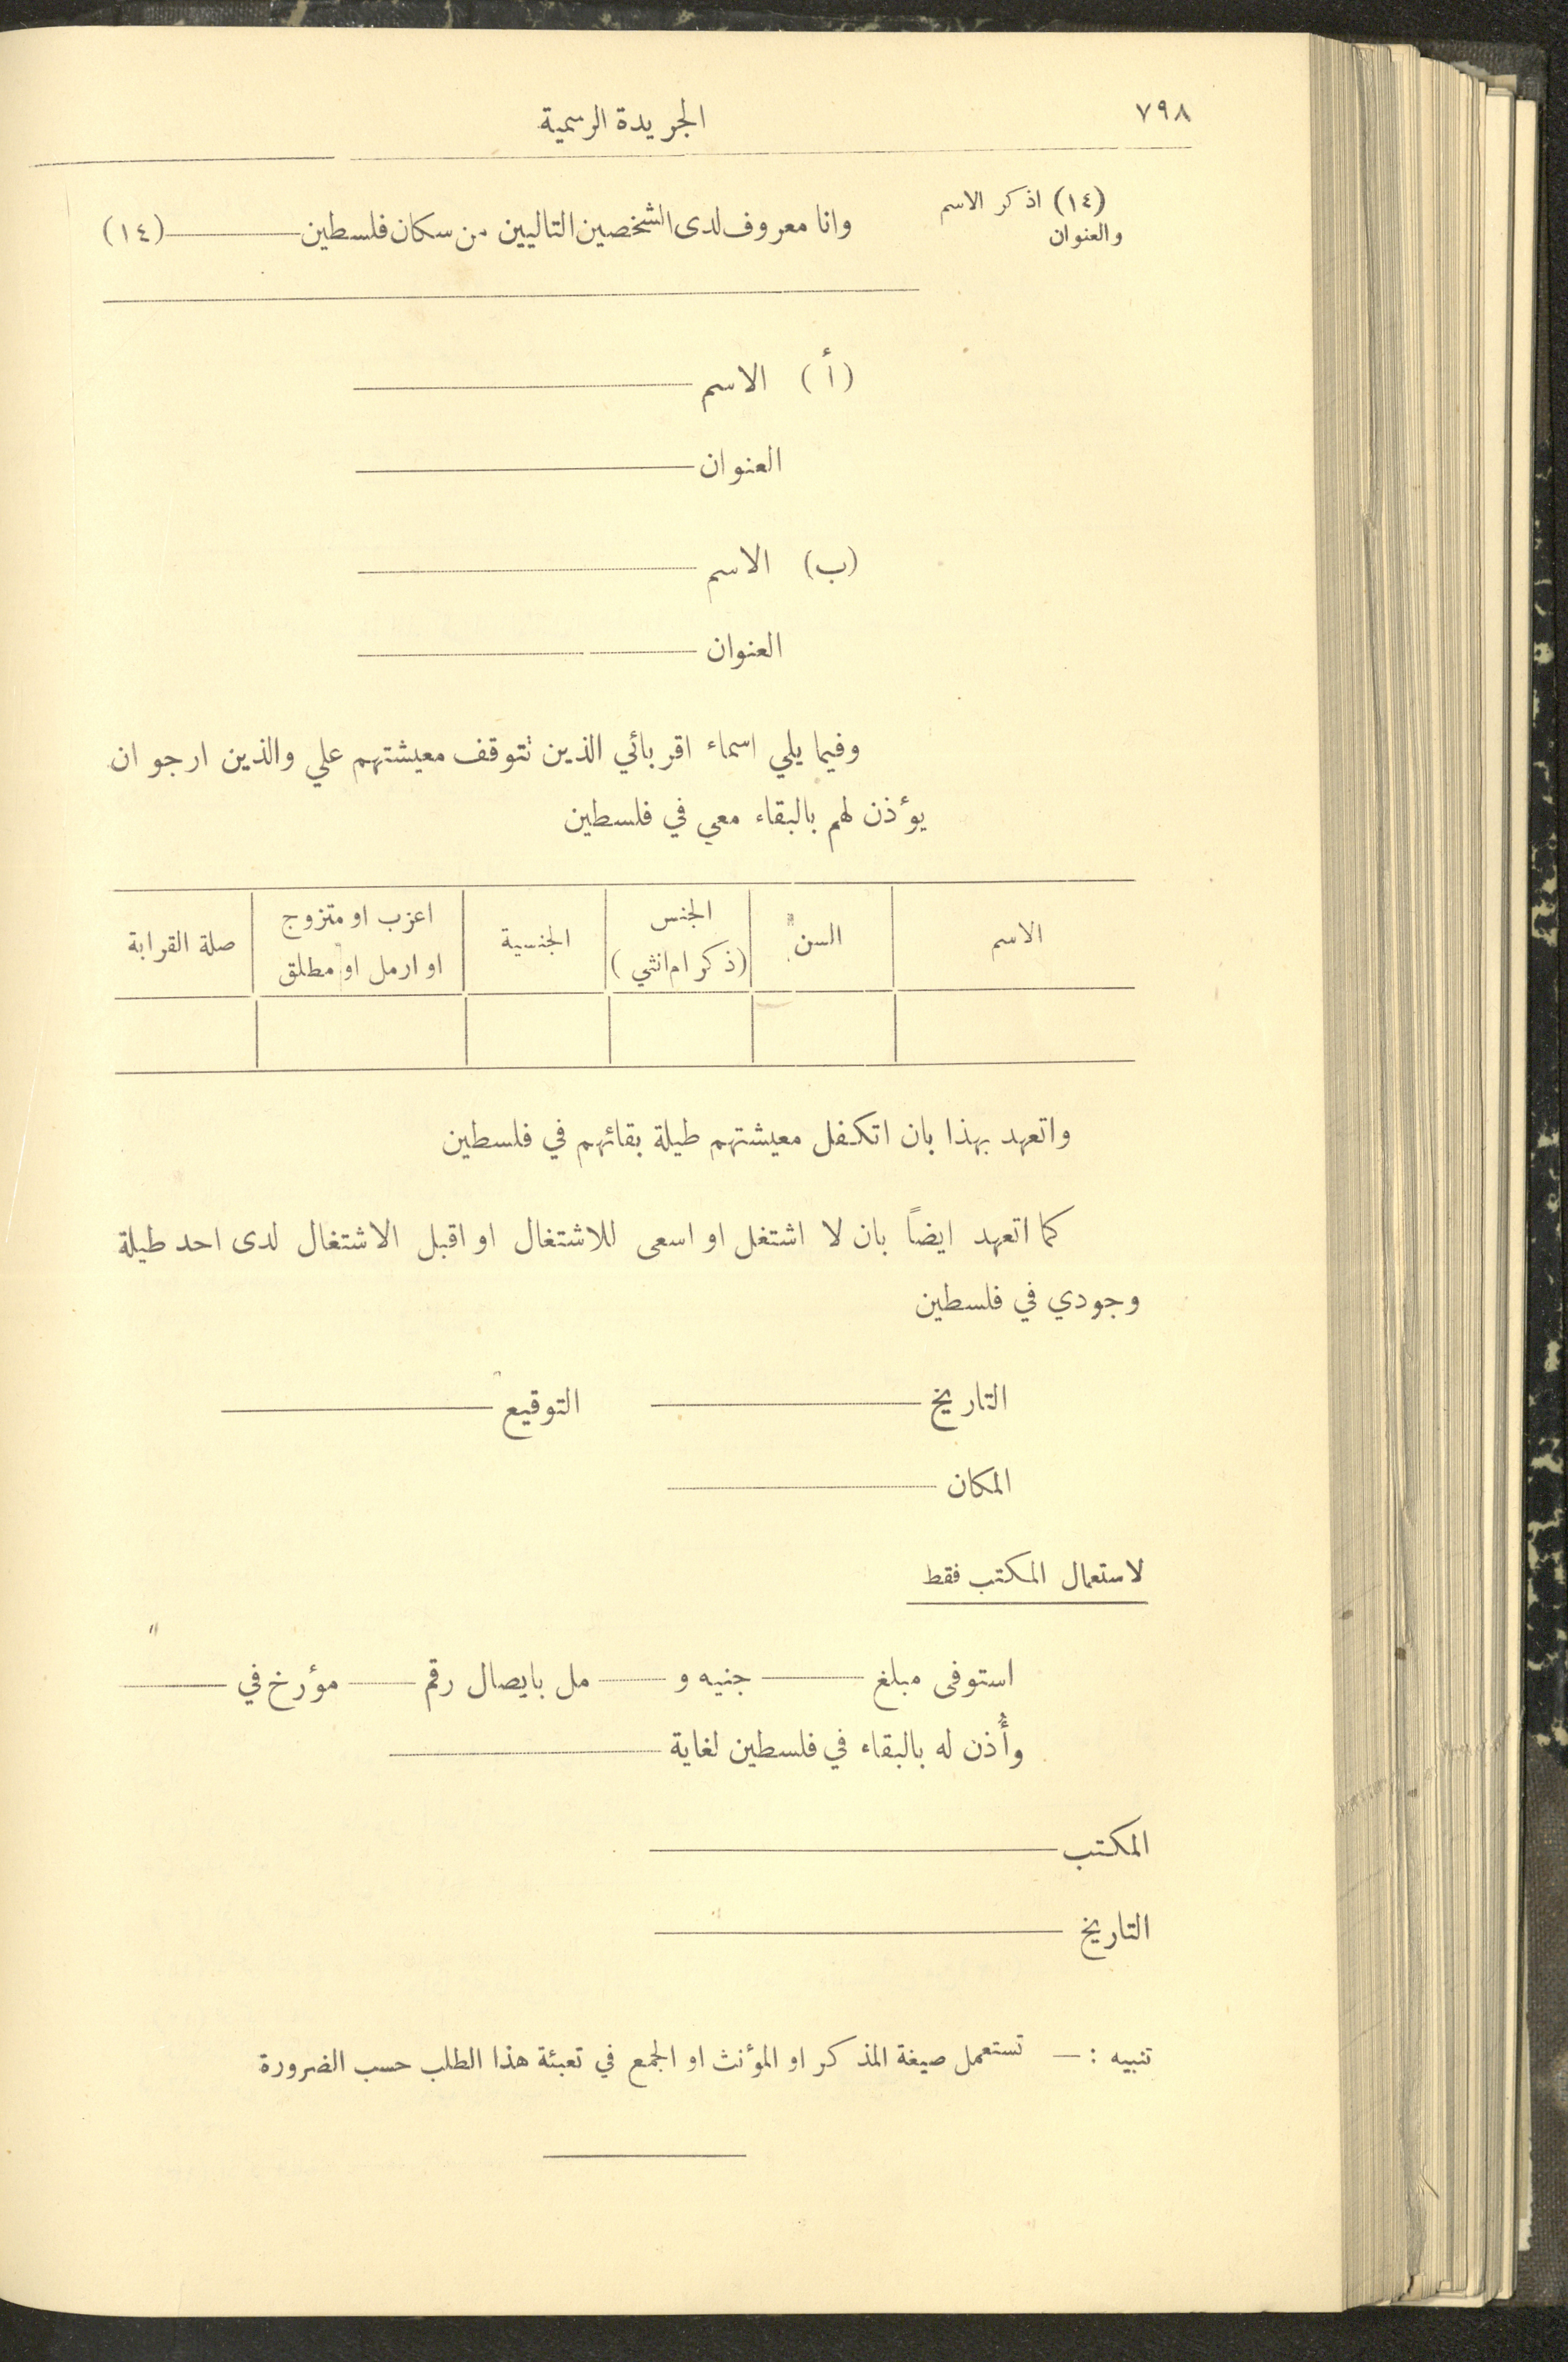 ٧٩٨
الجريدة الرسمية
(١٤) اذكر الاسم
والعنوان
وانا معروف لدى الشخصين التاليين من سكان فلسطين ـــــــــ (١٤)
(أ) الاسم ـــــــــ
العنوان ـــــــــ
(ب) الاسم ـــــــــ
العنوان ـــــــــ
وفيما يلي اسماء اقربائي الذين تتوقف معيشتهم علي والذين ارجو ان
يؤذن لهم بالبقاء معي في فلسطين
الاسم | السن | الجنس (ذكر ام انثى) | الجنسية | اعزب او متزوج او ارمل او مطلق | صلة القرابة
واتعهد بهذا بان اتكفل معيشتهم طيلة بقائهم في فلسطين
كما اتعهد ايضاً بان لا اشتغل او اسعى للاشتغال او اقبل الاشتغال لدى احد طيلة
وجودي في فلسطين
التاريخ ـــــــــ التوقيع ـــــــــ
المكان ـــــــــ
لاستعمال المكتب فقط
استوفى مبلغ ـــــــــ جنيه و ـــــــــ مل بايصال رقم ـــــــــ مؤرخ في ـــــــــ
وأُذن له بالبقاء في فلسطين لغاية ـــــــــ
المكتب ـــــــــ
التاريخ ـــــــــ
تنبيه : — تستعمل صيغة المذكر او المؤنث او الجمع في تعبئة هذا الطلب حسب الضرورة